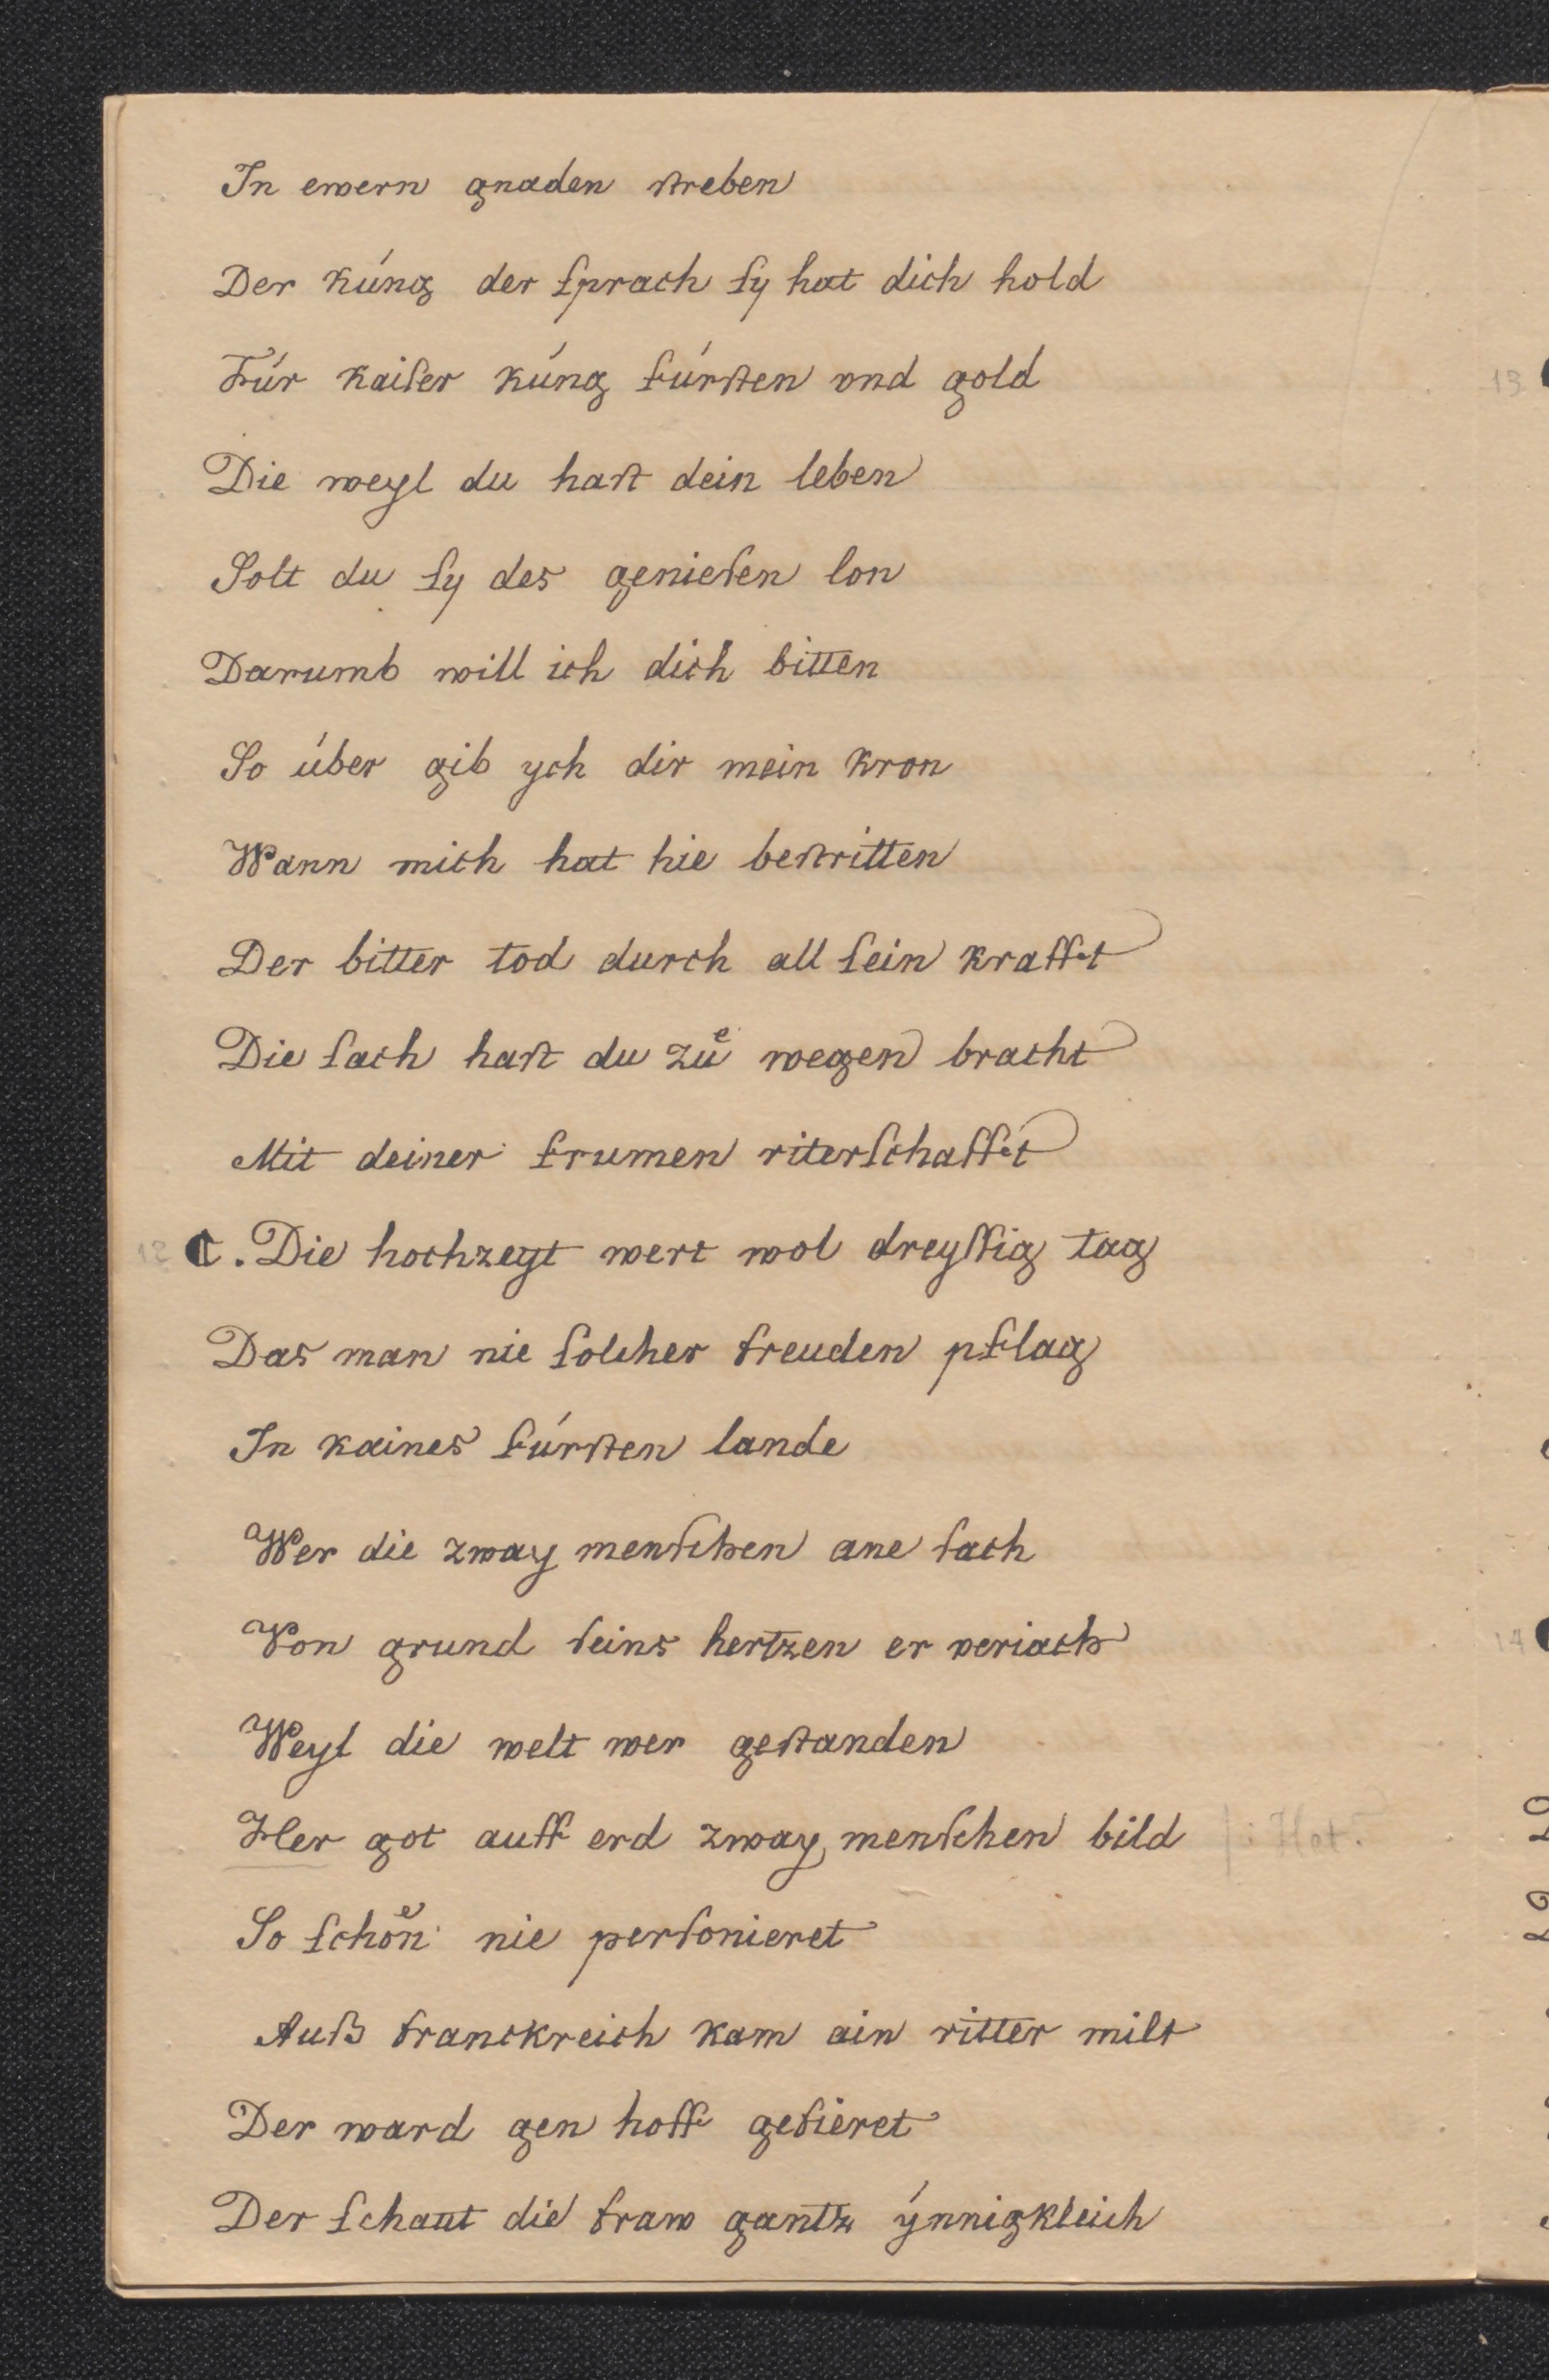 In ewern gnaden ſtreben
Der kúng der ſprach ſy hat dich hold
Fúr kaiſer kúng fúrſten vnd gold
Die weyl du haſt dein leben
Solt du ſy des genieſen lon
Darumb will ich dich bitten
So úber gib ych dir mein kron
Wann mich hat hie beſtritten
Der bitter tod durch all ſein krafft
Die ſach haſt du zuͤ wegen bracht
Mit deiner frumen riterſchafft
12 C. Die hochzeyt wert wol dreyſſig tag
Das man nie ſolcher freuden pflag
In kaines fúrſten lande
Wer die zway menſchen ane ſach
Von grund ſeins hertzen er veriach
Weyl die welt wer geſtanden
Her got auff erd zway menſchen bild | : Het.
So ſchoͤn nie perſonieret
Auß franckreich kam ain ritter milt
Der ward gen hoff gefieret
Der ſchaut die fraw gantz ýnnigkleich
13
14